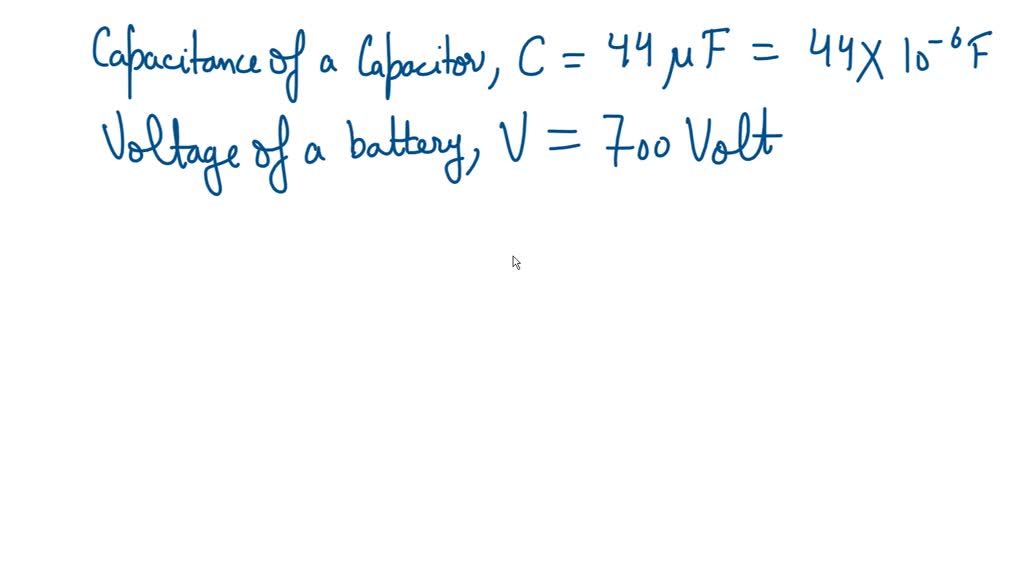 Capacitance of a Capacitor, C = 44 μF = 44 × 10⁻⁶ F
Voltage of a battery, V = 700 Volt